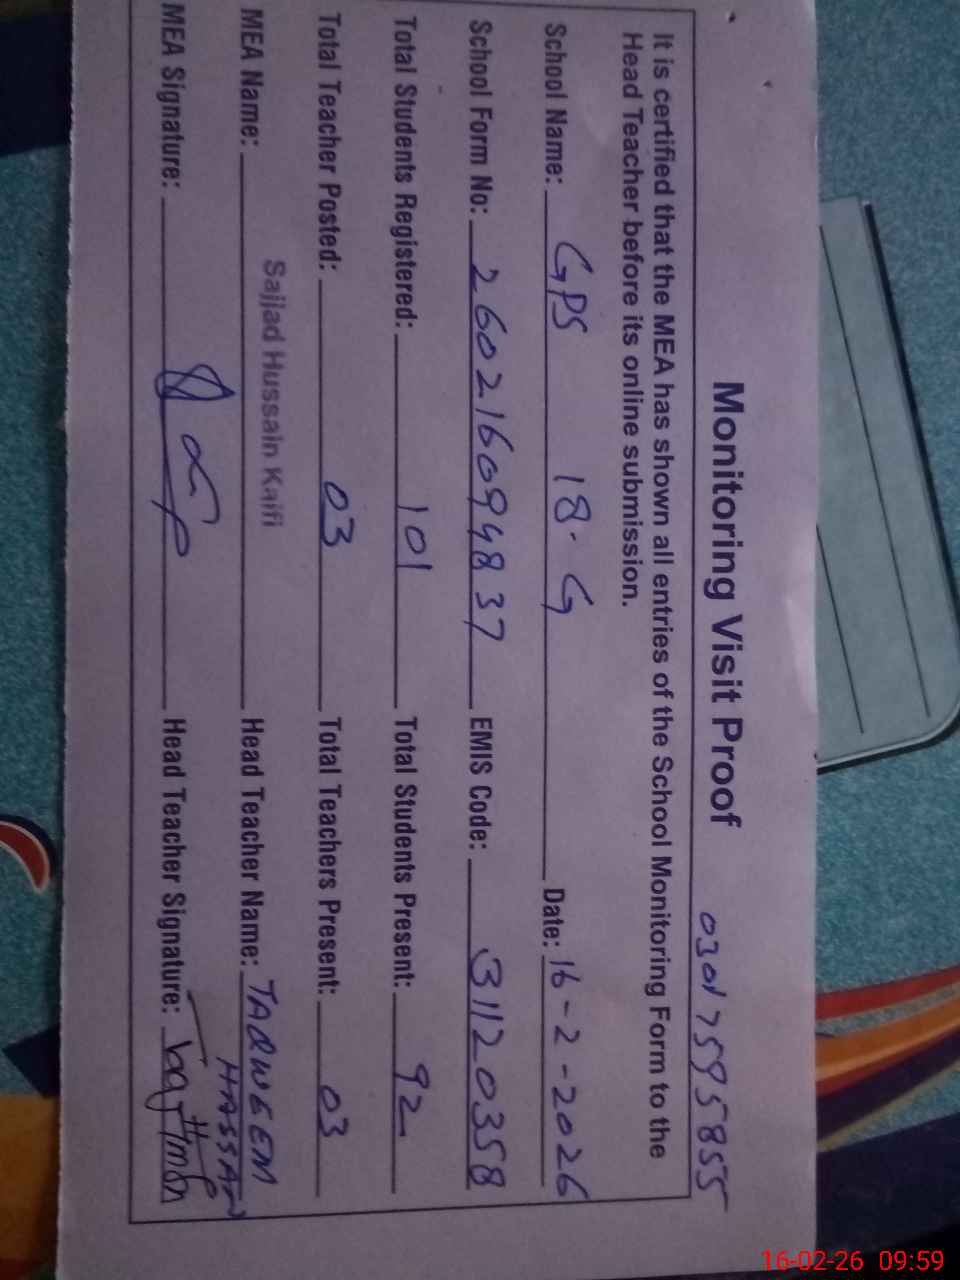 Monitoring Visit Proof 03017595855
It is certified that the MEA has shown all entries of the School Monitoring Form to the
Head Teacher before its online submission.
School Name: GPS 18-G Date: 16-2-2026
School Form No: 2602160994837 EMIS Code: 31120358
Total Students Registered: 101 Total Students Present: 92
Total Teacher Posted: 03 Total Teachers Present: 03
MEA Name: Sajjad Hussain Kaifi Head Teacher Name: TAQWEEM
HASSAN
MEA Signature: Head Teacher Signature:
16-02-26 09:59